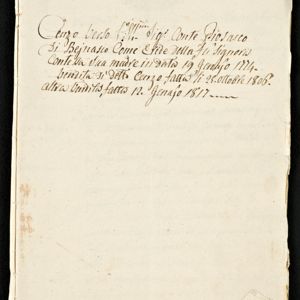 Cenzo verso l'Ill.mo Sig.r Conte Piosasco
di Beinasco Come Erede della fù Signora
Contessa sua madre in data 19 Genajo 1774.
Vendita di detto Cenzo fatta li 25 Ottobre 1806.
altra vendita fatta 12. Genajo 1817